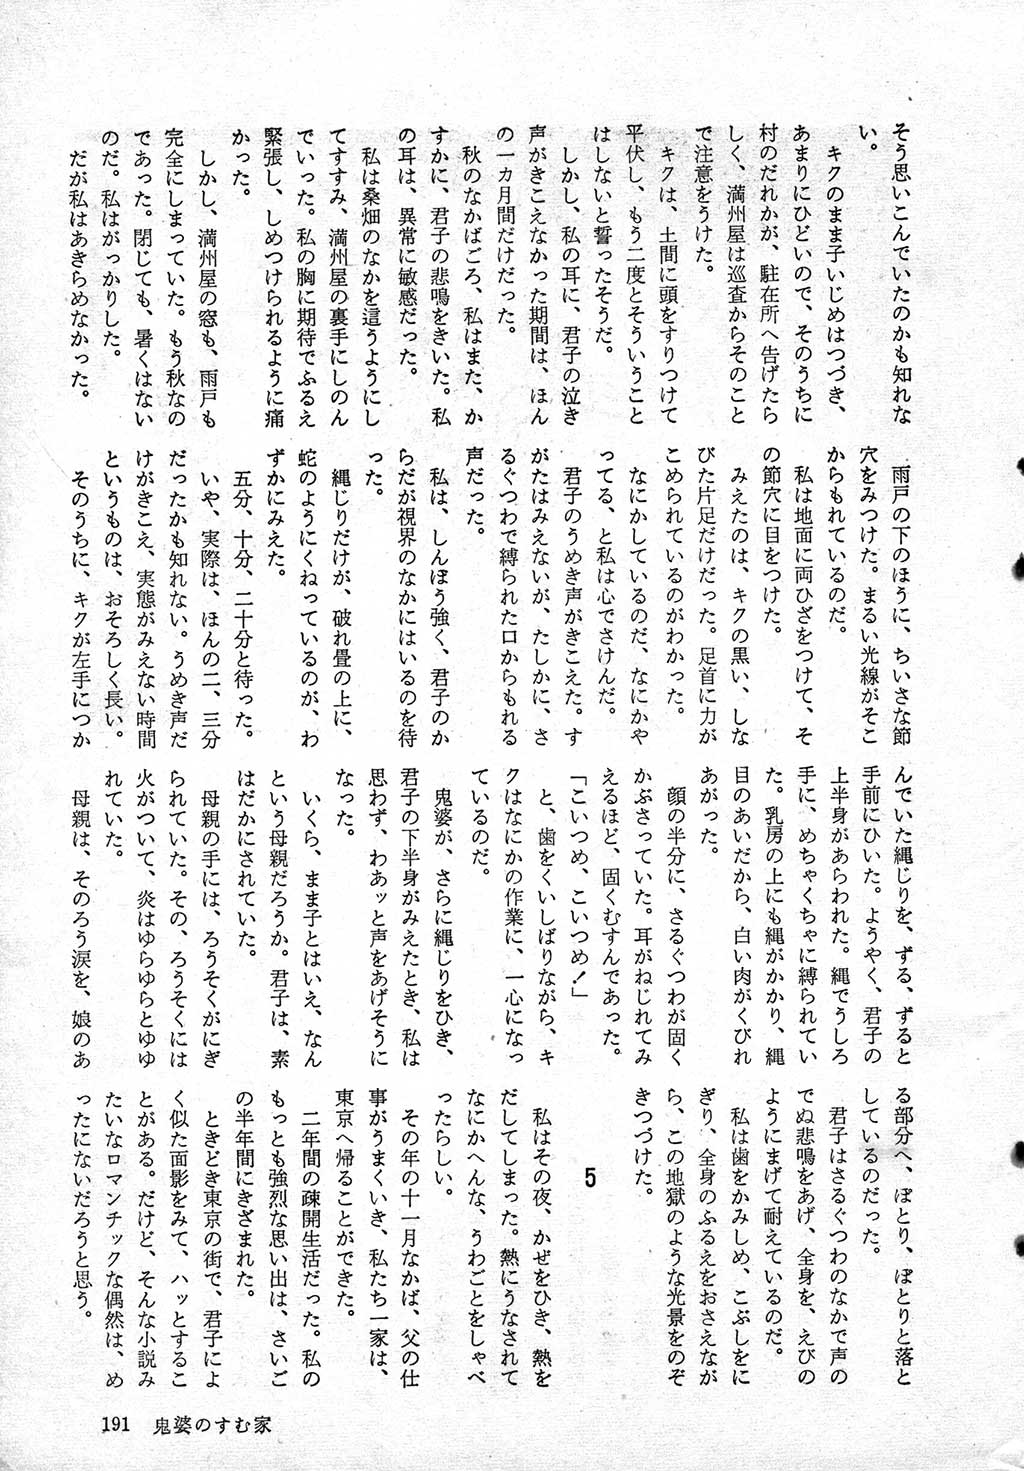 そう思いこんでいたのかも知れな
い。
キクのまま子いじめはつづき、
あまりにひどいので、そのうちに
村のだれかが、駐在所へ告げたら
しく、満州屋は巡査からそのこと
で注意をうけた。
キクは、土間に頭をすりつけて
平伏し、もう二度とそういうこと
はしないと誓ったそうだ。
しかし、私の耳に、君子の泣き
声がきこえなかった期間は、ほん
の一カ月間だけだった。
秋のなかばごろ、私はまた、か
すかに、君子の悲鳴をきいた。私
の耳は、異常に敏感だった。
私は桑畑のなかを這うようにし
てすすみ、満州屋の裏手にしのん
でいった。私の胸に期待でふるえ
緊張し、しめつけられるように痛
かった。
しかし、満州屋の窓も、雨戸も
完全にしまっていた。もう秋なの
であった。閉じても、暑くはない
のだ。私はがっかりした。
だが私はあきらめなかった。
雨戸の下のほうに、ちいさな節
穴をみつけた。まるい光線がそこ
からもれているのだ。
私は地面に両ひざをつけて、そ
の節穴に目をつけた。
みえたのは、キクの黒い、しな
びた片足だけだった。足首に力が
こめられているのがわかった。
なにかしているのだ、なにかや
ってる、と私は心でさけんだ。
君子のうめき声がきこえた。す
がたはみえないが、たしかに、さ
るぐつわで縛られた口からもれる
声だった。
私は、しんぼう強く、君子のか
らだが視界のなかにはいるのを待
った。
縄じりだけが、破れ畳の上に、
蛇のようにくねっているのが、わ
ずかにみえた。
五分、十分、二十分と待った。
いや、実際は、ほんの二、三分
だったかも知れない。うめき声だ
けがきこえ、実態がみえない時間
というものは、おそろしく長い。
そのうちに、キクが左手につか
んでいた縄じりを、ずる、ずると
手前にひいた。ようやく、君子の
上半身があらわれた。縄でうしろ
手に、めちゃくちゃに縛られてい
た。乳房の上にも縄がかかり、縄
目のあいだから、白い肉がくびれ
あがった。
顔の半分に、さるぐつわが固く
かぶさっていた。耳がねじれてみ
えるほど、固くむすんであった。
「こいつめ、こいつめ！」
と、歯をくいしばりながら、キ
クはなにかの作業に、一心になっ
ているのだ。
鬼婆が、さらに縄じりをひき、
君子の下半身がみえたとき、私は
思わず、わあッと声をあげそうに
なった。
いくら、まま子とはいえ、なん
という母親だろうか。君子は、素
はだかにされていた。
母親の手には、ろうそくがにぎ
られていた。その、ろうそくには
火がついて、炎はゆらゆらとゆゆ
れていた。
母親は、そのろう涙を、娘のあ
る部分へ、ぽとり、ぽとりと落と
しているのだった。
君子はさるぐつわのなかで声の
でぬ悲鳴をあげ、全身を、えびの
ようにまげて耐えているのだ。
私は歯をかみしめ、こぶしをに
ぎり、全身のふるえをおさえなが
ら、この地獄のような光景をのぞ
きつづけた。
5
私はその夜、かぜをひき、熱を
だしてしまった。熱にうなされて
なにかへんな、うわごとをしゃべ
ったらしい。
その年の十一月なかば、父の仕
事がうまくいき、私たち一家は、
東京へ帰ることができた。
二年間の疎開生活だった。私の
もっとも強烈な思い出は、さいご
の半年間にきざまれた。
ときどき東京の街で、君子によ
く似た面影をみて、ハッとするこ
とがある。だけど、そんな小説み
たいなロマンチックな偶然は、め
ったにないだろうと思う。
191 鬼婆のすむ家